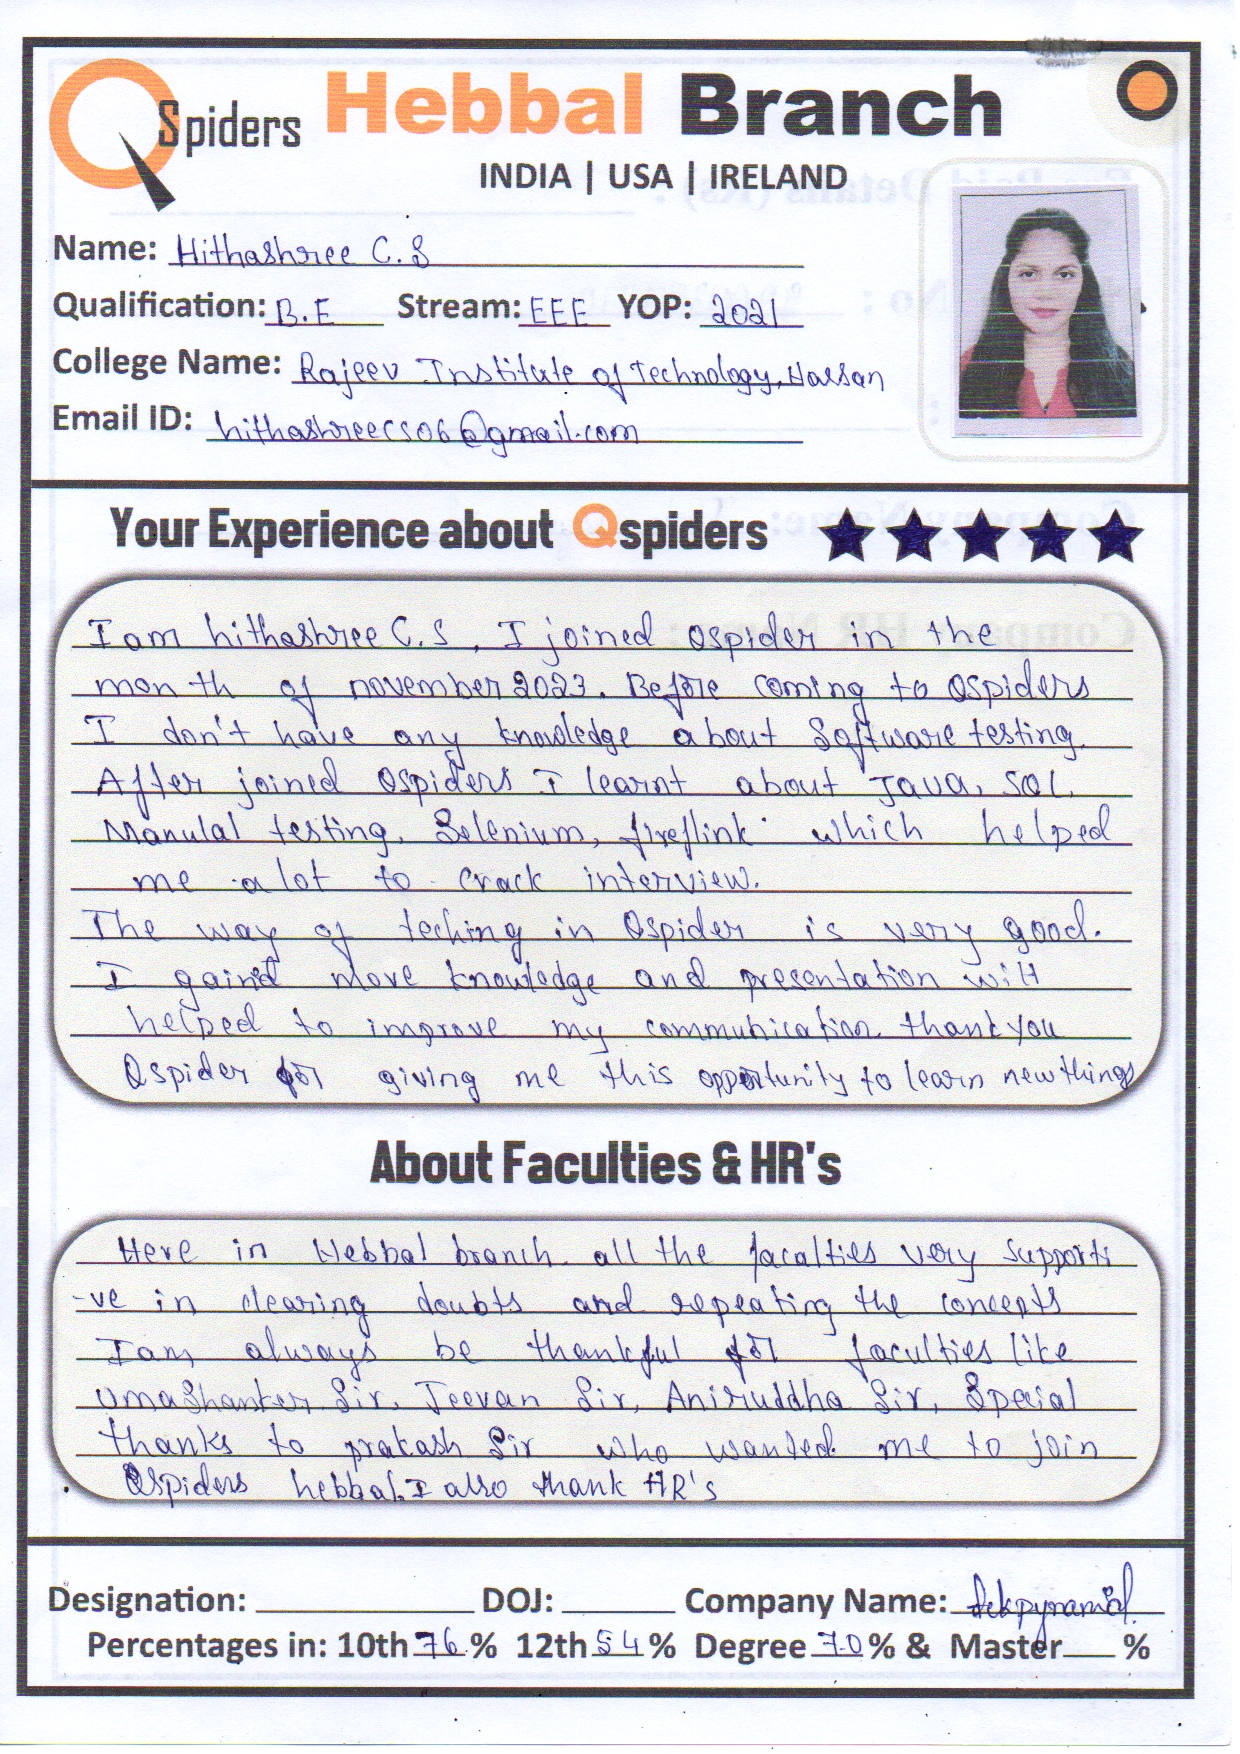 QSpiders Hebbal Branch
INDIA | USA | IRELAND
Name: Hithashree C.S
Qualification: B.E Stream: EEE YOP: 2021
College Name: Rajeev Institute of Technology, Hassan
Email ID: hithashreecs06@gmail.com
Your Experience about Qspiders
I am hithashree C.S , I joined Qspider in the
month of november 2023. Before coming to Qspiders
I don't have any knowledge about Software testing.
After joined Qspiders I learnt about Java, SQL,
Manulal testing, Selenium, fireflink which helped
me a lot to crack interview.
The way of teching in Qspider is very good.
I gained more knowledge and presentation will
helped to improve my communication. thank you
Qspider for giving me this opportunity to learn new things
About Faculties & HR's
Here in Hebbal branch all the facalties very supporti
-ve in clearing doubts and repeating the concepts
I am always be thankful for faculties like
UmaShanker Sir, Jeevan Sir, Aniruddha Sir, Special
thanks to prakash Sir who wanted me to join
Qspiders hebbal, I also thank HR's
Designation: DOJ: Company Name:
Percentages in: 10th 76 % 12th 54 % Degree 70 % & Master %